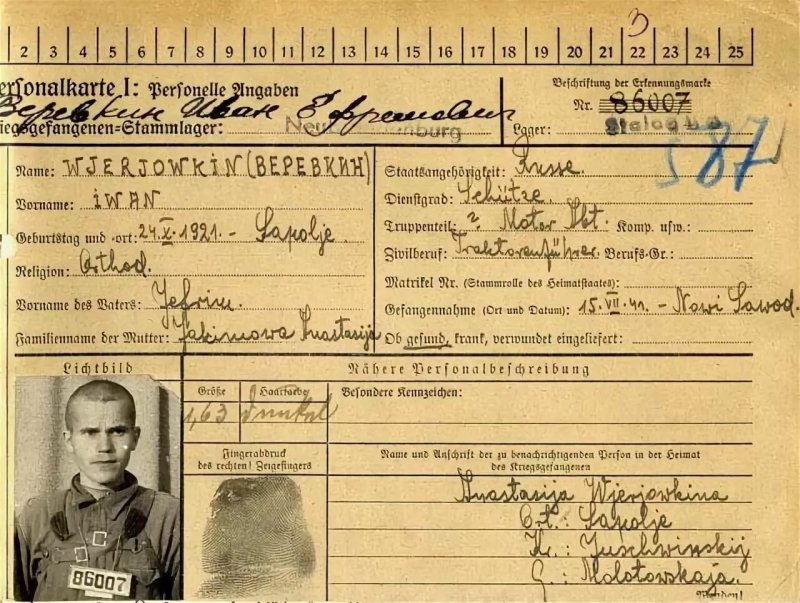 3
2 3 4 5 6 7 8 9 10 11 12 13 14 15 16 17 18 19 20 21 22 23 24 25
ersonalkarte I: Personelle Angaben
Beschriftung der Erkennungsmarke
Веревкин Иван Ефремович
Nr. 86007
iegsgefangenen-Stammlager: Neu burg
Lager: Stalag
587
Name: WJERJOWKIN (ВЕРЕВКИН)
Vorname: iWAN
Geburtstag und -ort: 24 X. 1921. - Sapolje.
Religion: Orthod.
Vorname des Vaters: Jefrim.
Familienname der Mutter: Jakimowa Anastasija
Staatsangehörigkeit: Russe.
Dienstgrad: Schütze.
Truppenteil: ? Motor Abt. Komp. usw.:
Zivilberuf: Traktorenführer. Berufs-Gr.:
Matrikel Nr. (Stammrolle des Heimatstaates):
Gefangennahme (Ort und Datum): 15. VII. 41. - Nowi Sawod.
Ob gesund, krank, verwundet eingeliefert:
Lichtbild
Nähere Personalbeschreibung
Größe
Haarfarbe
Besondere Kennzeichen:
1,63
dunkel
Fingerabdruck
des rechten! Zeigefingers
Name und Anschrift der zu benachrichtigenden Person in der Heimat
des Kriegsgefangenen
Anastasija Wjerjowkina
Ort.: Sapolje
Kr.: Juschwinskij
G.: Molotowskaja.
86007